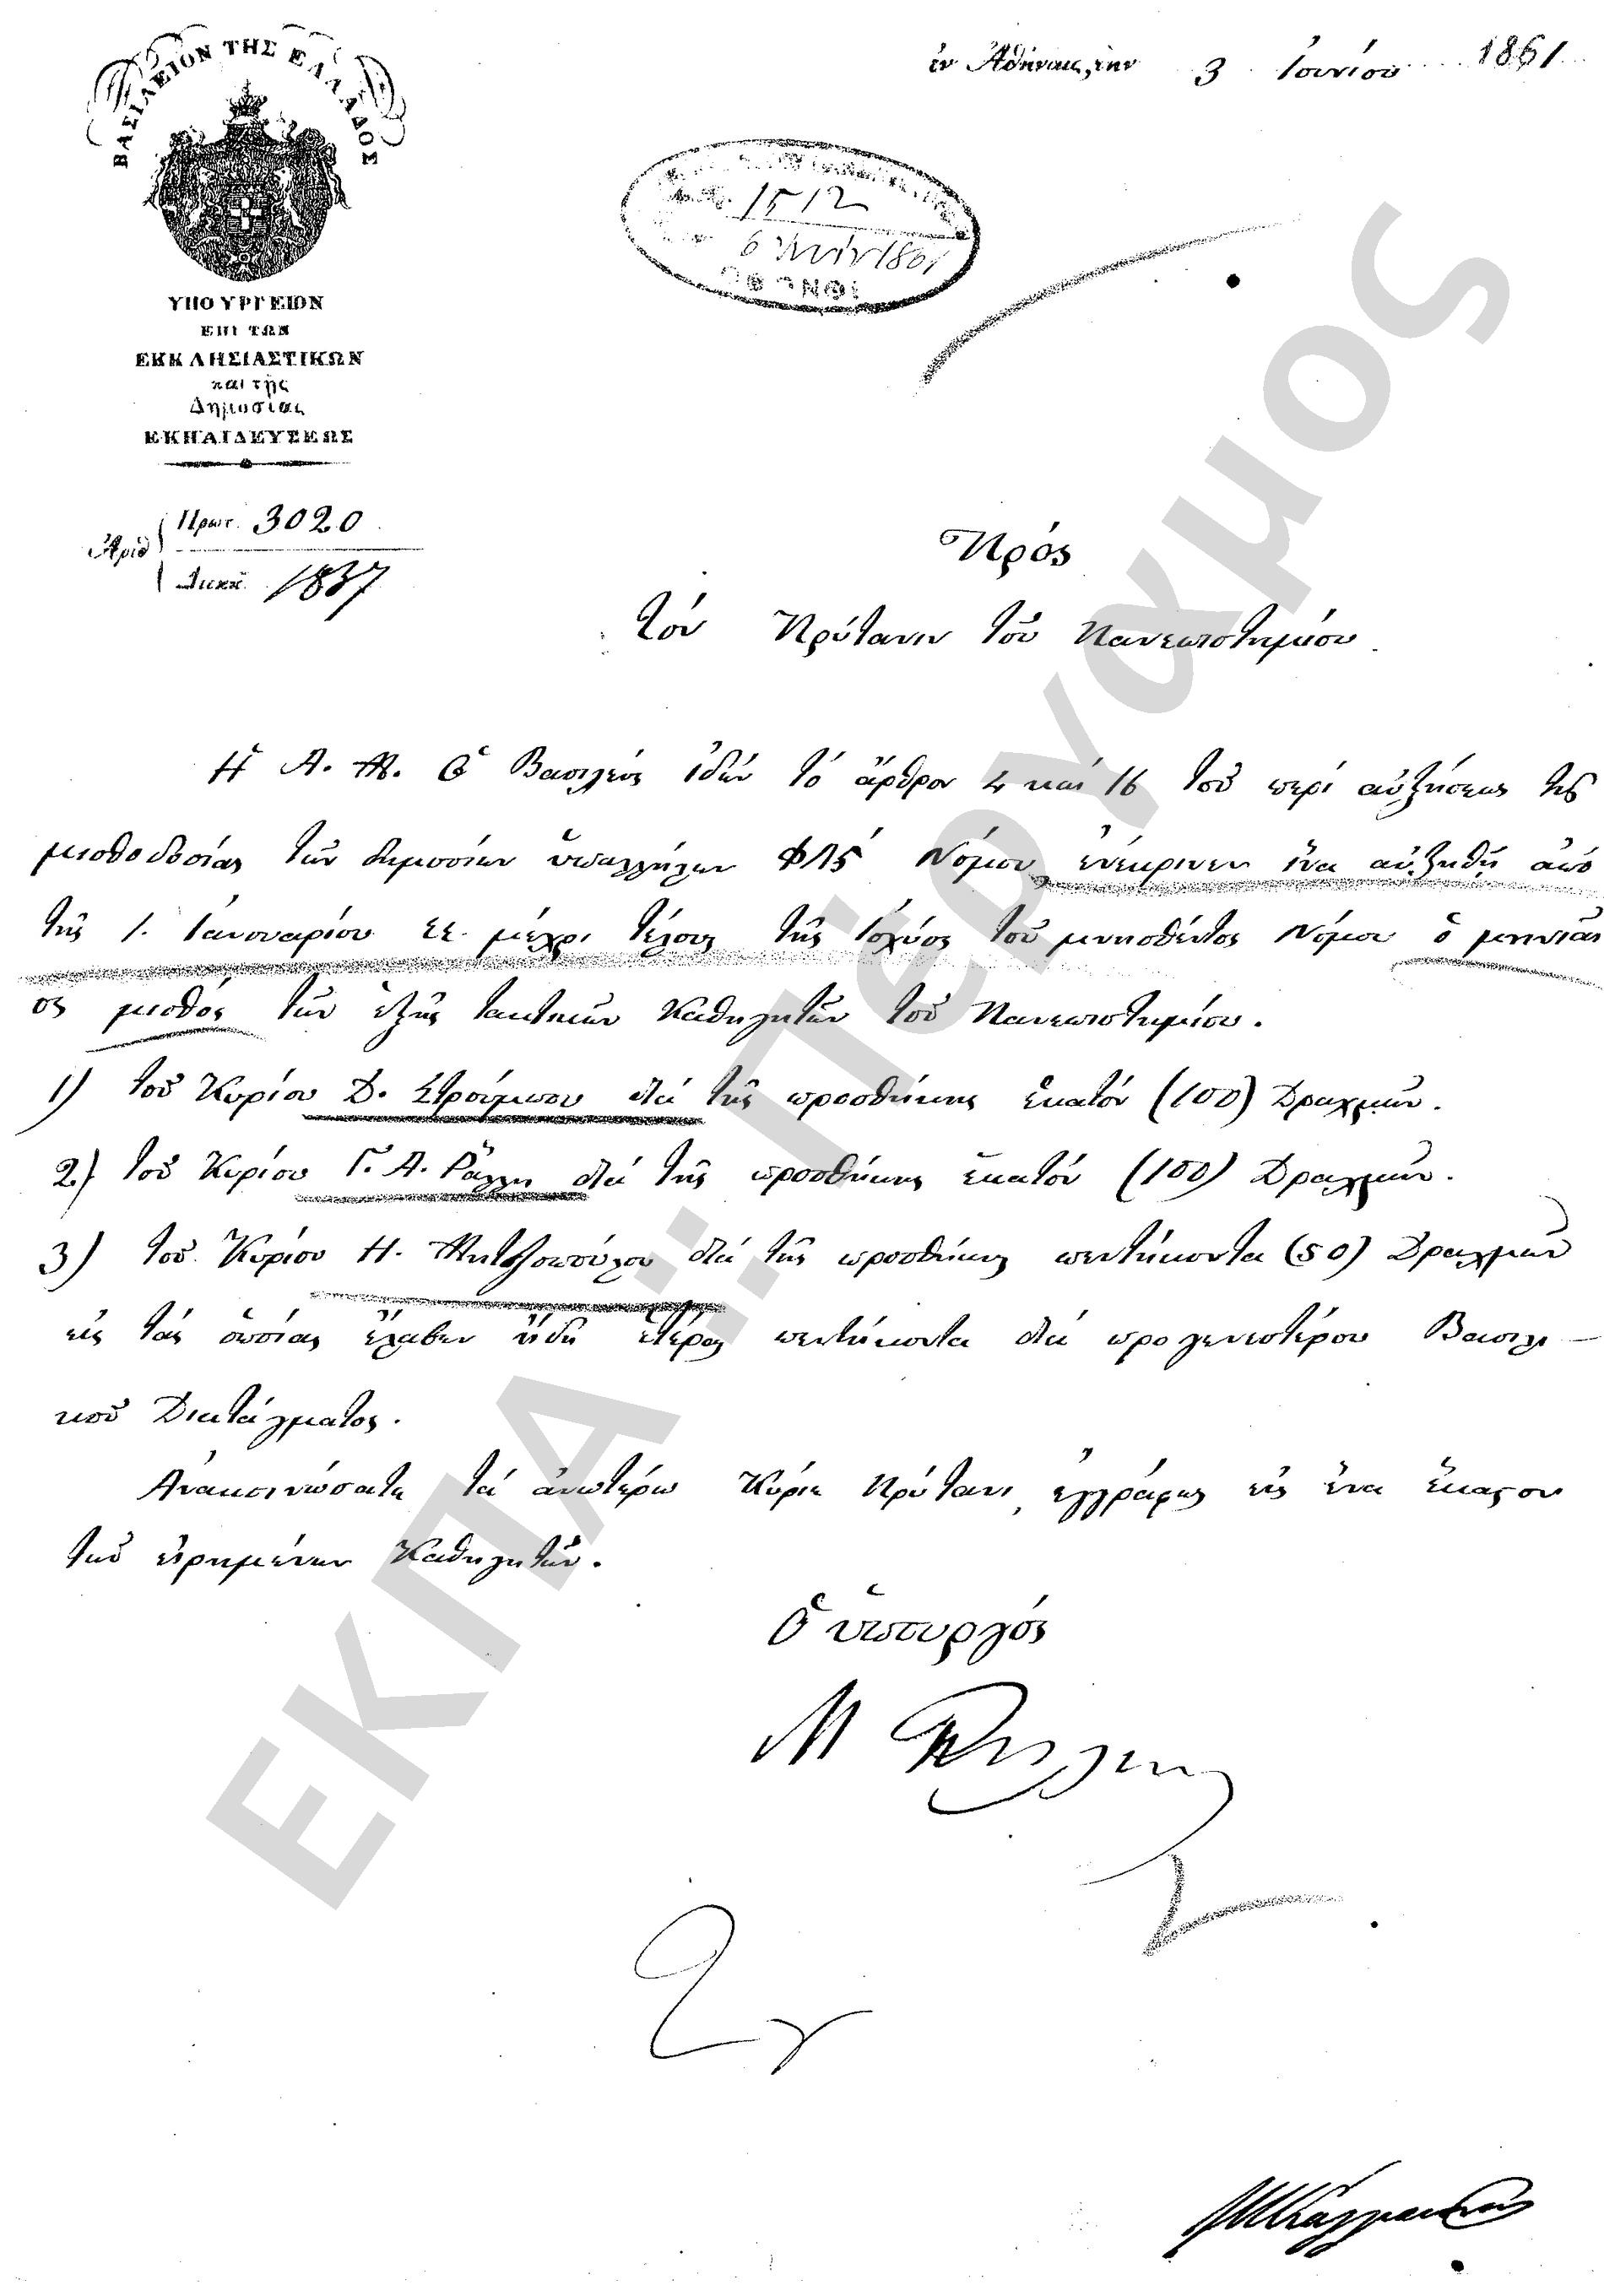 ΒΑΣΙΛΕΙΟΝ ΤΗΣ ΕΛΛΑΔΟΣ
ἐν Ἀθήναις, τὴν 3 Ἰουνίου 1861
1512
6 1861
ΥΠΟΥΡΓΕΙΟΝ
ΕΠΙ ΤΩΝ
ΕΚΚΛΗΣΙΑΣΤΙΚΩΝ
καὶ τῆς
Δημοσίας
ΕΚΠΑΙΔΕΥΣΕΩΣ
Ἀριθ Πρωτ. 3020
Διεκπ. 1837
Πρός
τόν Πρύτανιν τοῦ Πανεπιστημίου
Ἡ Α. Μ. Ὁ Βασιλεύς ἰδών τό ἄρθρον 4 καί 16 τοῦ περί αὐξήσεως τῆς
μισθοδοσίας τῶν δημοσίων ὑπαλλήλων ΦΛϚ Νόμου ἐνέκρινεν ἵνα αὐξηθῇ ἀπό
τῆς 1. Ἰανουαρίου ἐ.ἔ. μέχρι τέλους τῆς ἰσχύος τοῦ μνησθέντος Νόμου ὁ μηνιαῖ
ος μισθός τῶν ἑξῆς τακτικῶν Καθηγητῶν τοῦ Πανεπιστημίου.
1) τοῦ Κυρίου Δ. Στρούμπου διά τῆς προσθήκης ἑκατόν (100) Δραχμῶν.
2) τοῦ Κυρίου Γ. Α. Ράλλη διά τῆς προσθήκης ἑκατόν (100) Δραχμῶν.
3) τοῦ Κυρίου Η. Μητζοπούλου διά τῆς προσθήκης πεντήκοντα (50) Δραχμῶν
εἰς τάς ὁποίας ἔλαβεν ἤδη ἑτέρας πεντήκοντα διά προγενεστέρου Βασιλι-
κοῦ Διατάγματος.
Ἀνακοινώσατε τά ἀνωτέρω Κύριε Πρύτανι, ἐγγράφως εἰς ἕνα ἕκαστον
τῶν εἰρημένων Καθηγητῶν.
Ὁ ὑπουργός
Μ
ΕΚΠΑ:: Πέργαμος